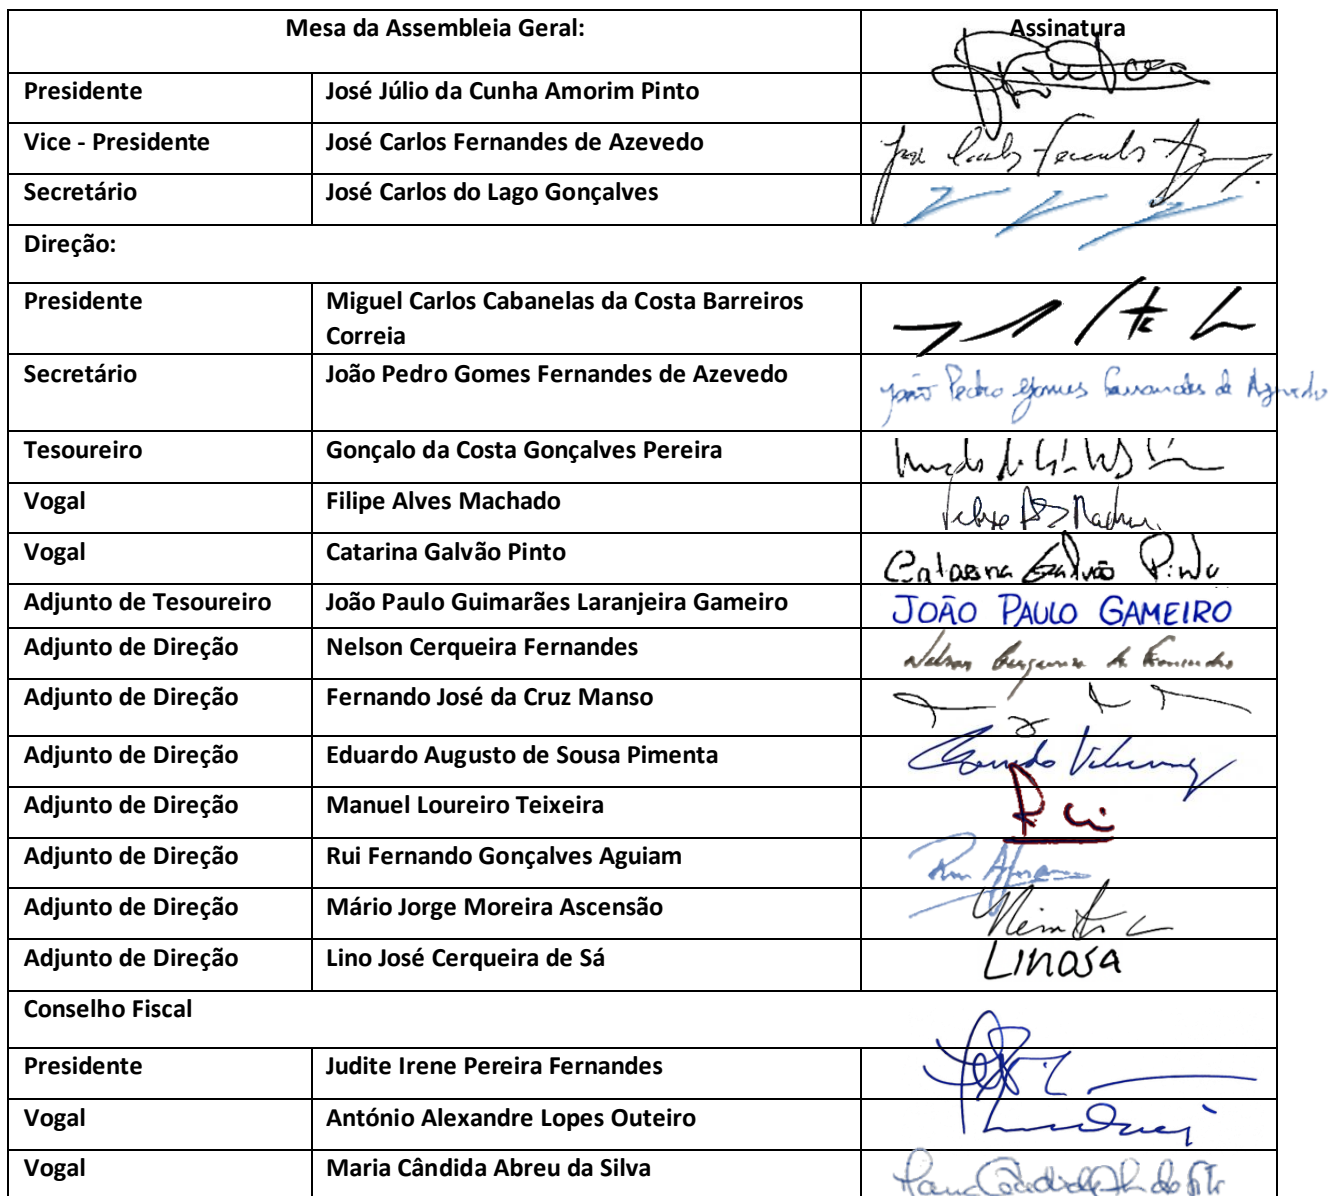 Mesa da Assembleia Geral: Assinatura
Presidente José Júlio da Cunha Amorim Pinto
Vice - Presidente José Carlos Fernandes de Azevedo
Secretário José Carlos do Lago Gonçalves
Direção:
Presidente Miguel Carlos Cabanelas da Costa Barreiros
Correia
Secretário João Pedro Gomes Fernandes de Azevedo João Pedro Gomes Fernandes de Azevedo
Tesoureiro Gonçalo da Costa Gonçalves Pereira
Vogal Filipe Alves Machado
Vogal Catarina Galvão Pinto Catarina Galvão Pinto
Adjunto de Tesoureiro João Paulo Guimarães Laranjeira Gameiro JOÃO PAULO GAMEIRO
Adjunto de Direção Nelson Cerqueira Fernandes
Adjunto de Direção Fernando José da Cruz Manso
Adjunto de Direção Eduardo Augusto de Sousa Pimenta
Adjunto de Direção Manuel Loureiro Teixeira
Adjunto de Direção Rui Fernando Gonçalves Aguiam
Adjunto de Direção Mário Jorge Moreira Ascensão
Adjunto de Direção Lino José Cerqueira de Sá LINOSA
Conselho Fiscal
Presidente Judite Irene Pereira Fernandes
Vogal António Alexandre Lopes Outeiro
Vogal Maria Cândida Abreu da Silva